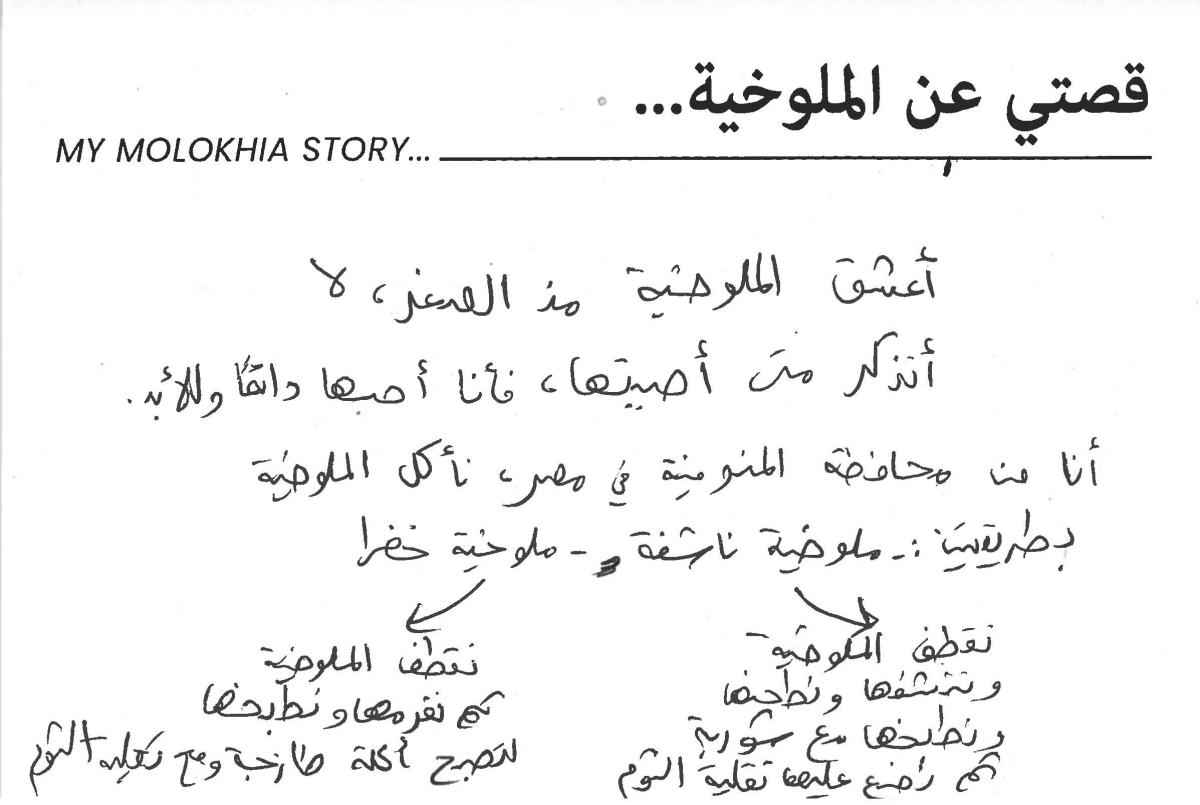 قصتي عن الملوخية...
MY MOLOKHIA STORY...
أعشق الملوخية منذ الصغر، لا
أتذكر متى أحببتها، فأنا أحبها دائمًا وللأبد.
أنا من محافظة المنوفية في مصر، نأكل الملوخية
بطريقتين :- ملوخية ناشفة - ملوخية خضرا
نقطف الملوخية
وننشفها ونطحنها
ونطبخها مع شوربة
ثم نضع عليها تقلية الثوم
نقطف الملوخية
ثم نفرمها ونطبخها
لتصبح أكلة طازجة ومع تقلية الثوم